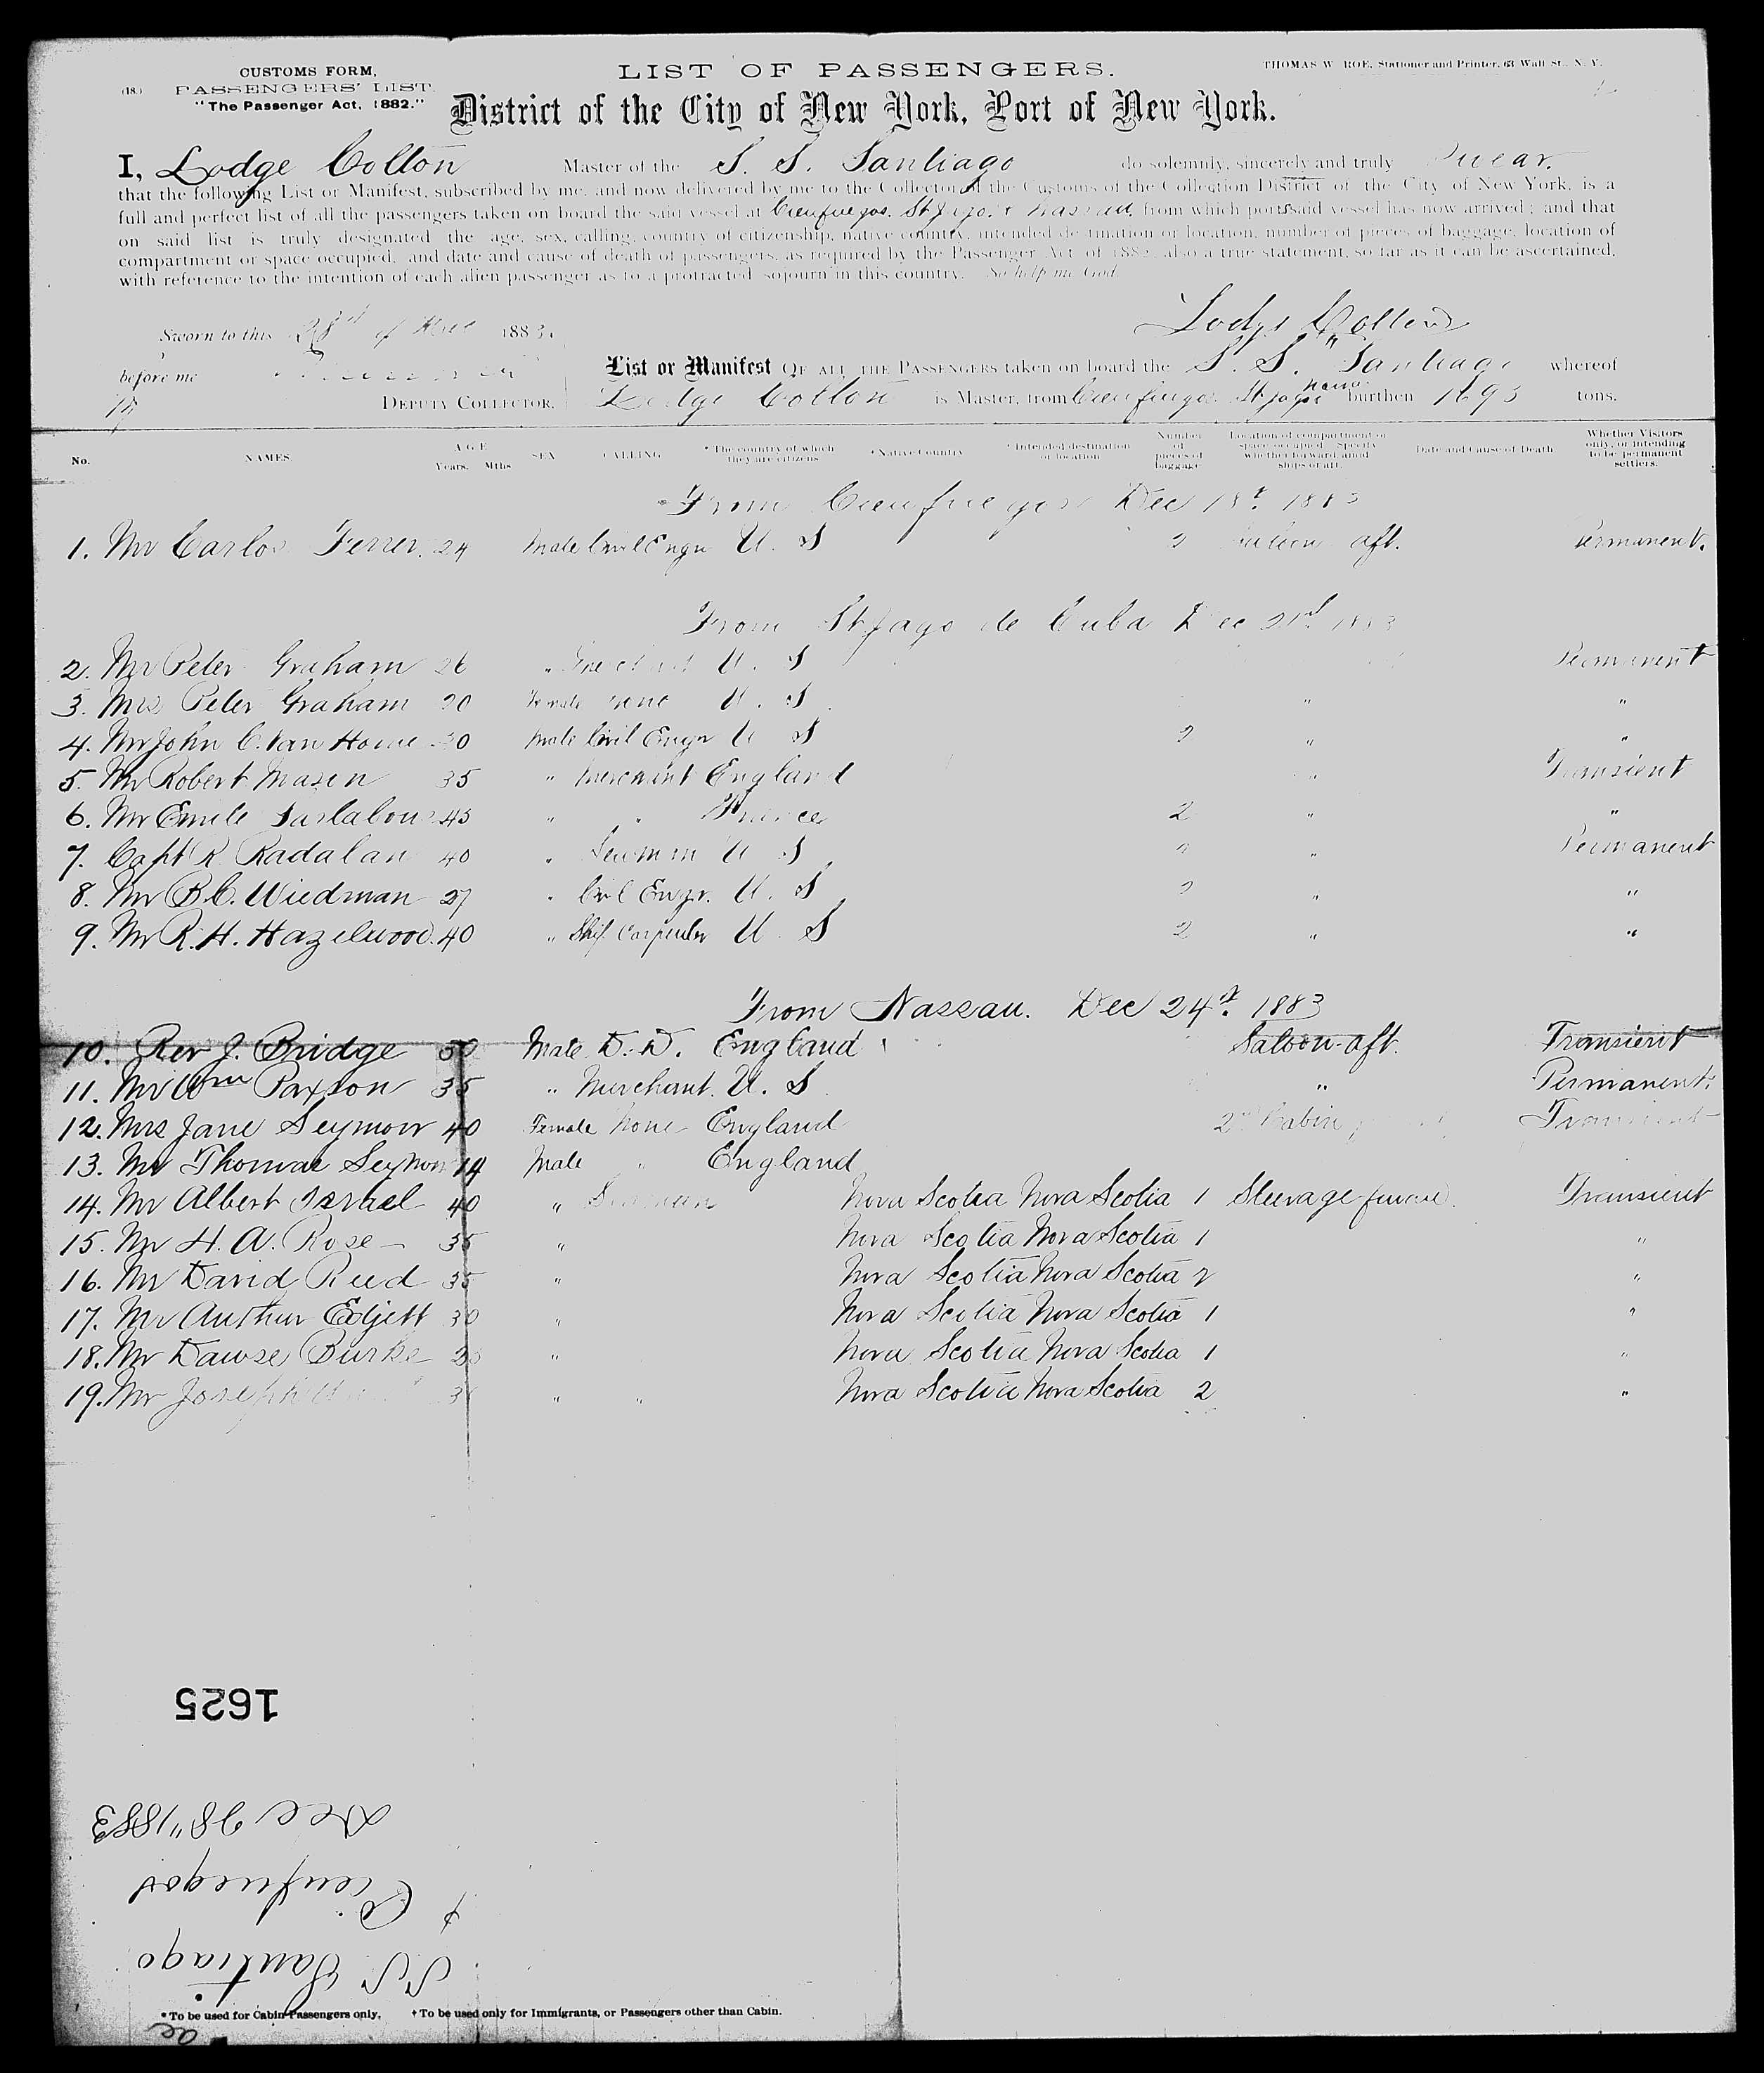 CUSTOMS FORM,
(18.) PASSENGERS' LIST.
"The Passenger Act, 1882."
LIST OF PASSENGERS.
THOMAS W. ROE, Stationer and Printer, 63 Wall St., N. Y.
District of the City of New York, Port of New York.
I, Lodge Colton Master of the S. S. Santiago do solemnly, sincerely and truly swear.
that the following List or Manifest, subscribed by me, and now delivered by me to the Collector of the Customs of the Collection District of the City of New York, is a
full and perfect list of all the passengers taken on board the said vessel at Cienfuegos, St Jago & Nassau, from which ports said vessel has now arrived; and that
on said list is truly designated the age, sex, calling, country of citizenship, native country, intended destination or location, number of pieces of baggage, location of
compartment or space occupied, and date and cause of death of passengers, as required by the Passenger Act of 1882, also a true statement, so far as it can be ascertained,
with reference to the intention of each alien passenger as to a protracted sojourn in this country. So help me God.
Lodge Colton
Sworn to this 28 of Dec 1883.
before me
DEPUTY COLLECTOR.
List or Manifest OF ALL THE PASSENGERS taken on board the S. S. "Santiago whereof
Lodge Colton is Master, from Cienfuegos St Jago Nassau burthen 1693 tons.
No. NAMES. AGE Years. Mths. SEX CALLING * The country of which they are citizens † Native Country † Intended destination or location. Number of pieces of baggage Location of compartment or space occupied. Specify whether forward, amidships or aft. Date and Cause of Death Whether Visitors only, or intending to be permanent settlers.
From Cienfuegos Dec 18th 1883
1. Mr Carlos Ferrer. 24 Male Civil Engr U. S 2 Saloon aft. Permanent.
From St Jago de Cuba Dec 21st 1883
2. Mr Peter Graham 26 " U. S Permanent
3. Mrs Peter Graham 20 Female none U. S " "
4. Mr John C. Van Horne 30 Male Civil Engr U S 2 " "
5. Mr Robert Mason 35 " Merchant England " Transient
6. Mr Emile 45 " " France 2 " "
7. Capt R. Radalan 40 " Seaman U S 2 " Permanent
8. Mr B. C. Wiedman 27 " Civil Engr. U. S 2 " "
9. Mr R. H. Hazelwood. 40 " Ship Carpenter U S 2 " "
From Nassau. Dec 24th 1883
10. Rev J. Bridge 50 Male D. D. England Saloon aft. Transient
11. Mr Wm Paxson 35 " Merchant. U. S " Permanent.
12. Mrs Jane Seymour 40 Female None England 2nd Cabin Transient
13. Mr Thomas Seymour 14 Male " England
14. Mr Albert Israel 40 " Seaman Nova Scotia Nova Scotia 1 Steerage forward. Transient
15. Mr H. A. Rose 35 " Nova Scotia Nova Scotia 1 "
16. Mr David Reed 35 " Nova Scotia Nova Scotia 2 "
17. Mr Arthur Edjett 30 " Nova Scotia Nova Scotia 1 "
18. Mr Dawse Burke " Nova Scotia Nova Scotia 1 "
19. Mr Joseph " " Nova Scotia Nova Scotia 2 "
1625
SS Santiago
+ Cienfuegos
Dec 28" 1883
* To be used for Cabin Passengers only. † To be used only for Immigrants, or Passengers other than Cabin.